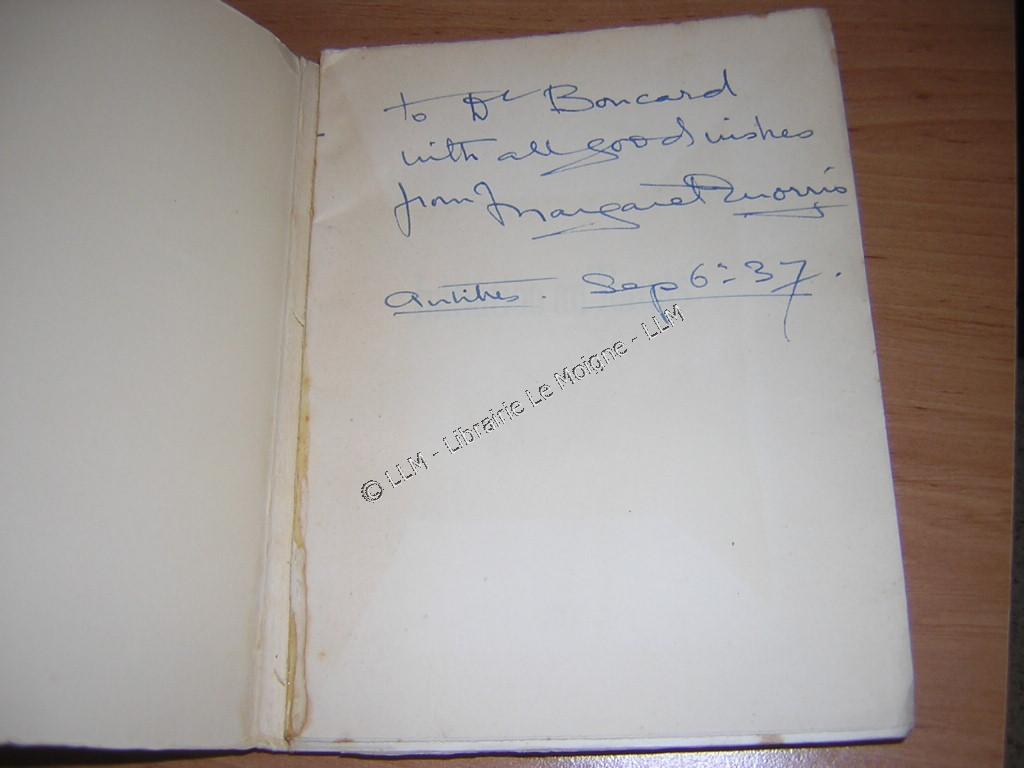 To Dr Boncard
with all good wishes
from Margaret Morris
Antibes. Sep 6: 37.
© LLM - Librairie Le Moigne - LLM